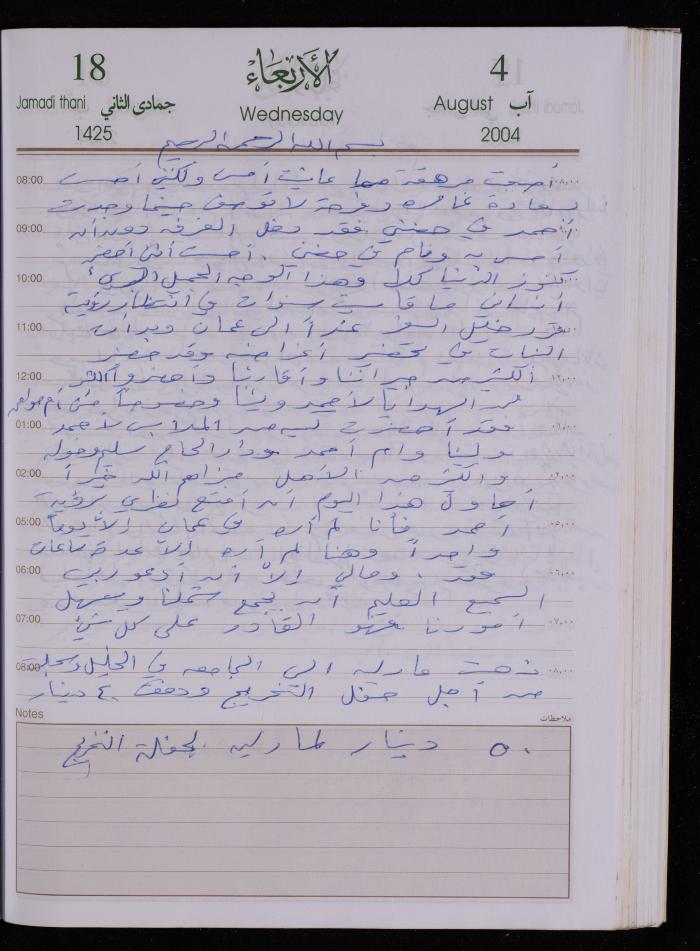 18 الأربعاء 4
Jamadi thani جمادى الثاني Wednesday August آب
1425 2004
بسم الله الرحمن الرحيم
08:00 أصبحت مرهقة مما عانيت أمس ولكنني أحسست ٠٨,٠٠
بسعادة غامرة وفرحة لا توصف حينما وجدت
09:00 أحمد في حضني فقد دخل الغرفة دون أن
أحس به ونام في حضني . أحسست أنني أحضن
10:00 كنوز الدنيا كلها وهذا الوجه الجميل البريء
أنساني ما قاسيت سنوات في انتظار رؤيته
11:00 قررت السفر غداً الى عمان وبدأت
البنات في تحضير أغراضه وقد حضر
12:00 الكثير من جيراننا وأقاربنا وأحضروا ١٢,٠٠
من الهدايا لأحمد ولينا وخصوصاً
01:00 فقد أحضرت من الملابس لأحمد
ولينا وام أحمد ودار الحاج سليم وخوله
02:00 والكثير من الأهل جزاهم الله خيراً
أحاول هذا اليوم أن أمتع نظري برؤية
05:00 أحمد فأنا لم أره في عمان إلا يوماً
واحداً وهنا لم أره إلا عدة ساعات
06:00 فقط . ومالي إلا أن أدعو ربي ٠٦,٠٠
السميع العليم أن يجمع شملنا ويسهل
07:00 أمورنا فهو القادر على كل شيء ٠٧,٠٠
08:00 ذهبت مارلين الى الجامعه في الخليل وسجلت ٠٨,٠٠
من أجل حفل التخريج ودفعت ٤٠ دينار
Notes ملاحظات
٥٠ دينار لمارلين لحفلة التخريج